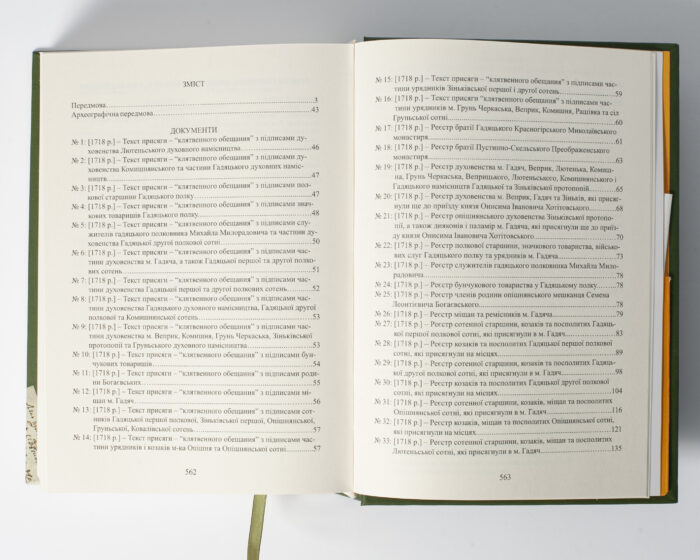 ЗМІСТ
Передмова 3
Археографічна передмова 43
ДОКУМЕНТИ
№ 1: [1718 р.] – Текст присяги – “клятвенного обещания” з підписами ду-
ховенства Лютенського духовного намісництва 46
№ 2: [1718 р.] – Текст присяги – “клятвенного обещания” з підписами ду-
ховенства Комишнянського та частини Гадяцького духовних наміс-
ництв 47
№ 3: [1718 р.] – Текст присяги – “клятвенного обещания” з підписами пол-
кової старшини Гадяцького полку 47
№ 4: [1718 р.] – Текст присяги – “клятвенного обещания” з підписами знач-
кових товаришів Гадяцького полку 48
№ 5: [1718 р.] – Текст присяги – “клятвенного обещания” з підписами слу-
жителів гадяцького полковника Михайла Милорадовича та частини ду-
ховенства Гадяцької другої полкової сотні 50
№ 6: [1718 р.] – Текст присяги – “клятвенного обещания” з підписами час-
тини духовенства м. Гадяча, а також Гадяцької першої та другої полко-
вих сотень 51
№ 7: [1718 р.] – Текст присяги – “клятвенного обещания” з підписами час-
тини духовенства Гадяцької першої та другої полкових сотень 52
№ 8: [1718 р.] – Текст присяги – “клятвенного обещания” з підписами час-
тини духовенства Гадяцького духовного намісництва, Гадяцької другої
полкової та Комишнянської сотень 53
№ 9: [1718 р.] – Текст присяги – “клятвенного обещания” з підписами час-
тини духовенства м. Веприк, Комишня, Грунь Черкаська, Зіньківської
протопопії та Груньського духовного намісництва 53
№ 10: [1718 р.] – Текст присяги – “клятвенного обещания” з підписами бун-
чукових товаришів 54
№ 11: [1718 р.] – Текст присяги – “клятвенного обещания” з підписами роди-
ни Богаєвських 55
№ 12: [1718 р.] – Текст присяги – “клятвенного обещания” з підписами мі-
щан м. Гадяч 56
№ 13: [1718 р.] – Текст присяги – “клятвенного обещания” з підписами сот-
ників Гадяцької першої полкової, Зіньківської першої, Опішнянської,
Груньської, Ковалівської сотень 57
№ 14: [1718 р.] – Текст присяги – “клятвенного обещания” з підписами час-
тини урядників і козаків м-ка Опішня та Опішнянської сотні 57
562
№ 15: [1718 р.] – Текст присяги – “клятвенного обещания” з підписами час-
тини урядників Зіньківської першої і другої сотень 59
№ 16: [1718 р.] – Текст присяги – “клятвенного обещания” з підписами час-
тини урядників м. Грунь Черкаська, Веприк, Комишня, Рашівка та сіл
Груньської сотні 60
№ 17: [1718 р.] – Реєстр братії Гадяцького Красногірського Миколаївського
монастиря 61
№ 18: [1718 р.] – Реєстр братії Пустинно-Скельського Преображенського
монастиря 63
№ 19: [1718 р.] – Реєстр духовенства м. Гадяч, Веприк, Лютенька, Комиш-
на, Грунь Черкаська, Веприцького, Лютенського, Комишнянського і
Гадяцького намісництв Гадяцької та Зіньківської протопопій 65
№ 20: [1718 р.] – Реєстр духовенства м. Веприк, Гадяч та Зіньків, які присяг-
нули ще до приїзду князя Онисима Івановича Хотітовського 68
№ 21: [1718 р.] – Реєстр опішнянського духовенства Зіньківської протопо-
пії, а також дияконів і паламір м. Гадяч, які присягнули ще до приїз-
ду князя Онисима Івановича Хотітовського 70
№ 22: [1718 р.] – Реєстр полкової старшини, значкового товариства, військо-
вих слуг Гадяцького полку та урядників м. Гадяч 73
№ 23: [1718 р.] – Реєстр служителів гадяцького полковника Михайла Мило-
радовича 78
№ 24: [1718 р.] – Реєстр бунчукового товариства у Гадяцькому полку 78
№ 25: [1718 р.] – Реєстр членів родини опішнянського мешканця Семена
Леонтієвича Богаєвського 78
№ 26: [1718 р.] – Реєстр міщан та ремісників м. Гадяча 79
№ 27: [1718 р.] – Реєстр сотенної старшини, козаків та посполитих Гадяць-
кої першої полкової сотні, які присягнули в м. Гадяч 83
№ 28: [1718 р.] – Реєстр козаків та посполитих Гадяцької першої полкової
сотні, які присягнули на місцях 89
№ 29: [1718 р.] – Реєстр сотенної старшини, козаків та посполитих Гадяць-
кої другої полкової сотні, які присягнули в м. Гадяч 98
№ 30: [1718 р.] – Реєстр козаків та посполитих Гадяцької другої полкової
сотні, які присягнули на місцях 104
№ 31: [1718 р.] – Реєстр сотенної старшини, козаків, міщан та посполитих
Опішнянської сотні, які присягнули в м. Гадяч 116
№ 32: [1718 р.] – Реєстр козаків, міщан та посполитих Опішнянської сотні,
які присягнули на місцях 121
№ 33: [1718 р.] – Реєстр сотенної старшини, козаків, міщан та посполитих
Лютенської сотні, які присягнули в м. Гадяч 135
563